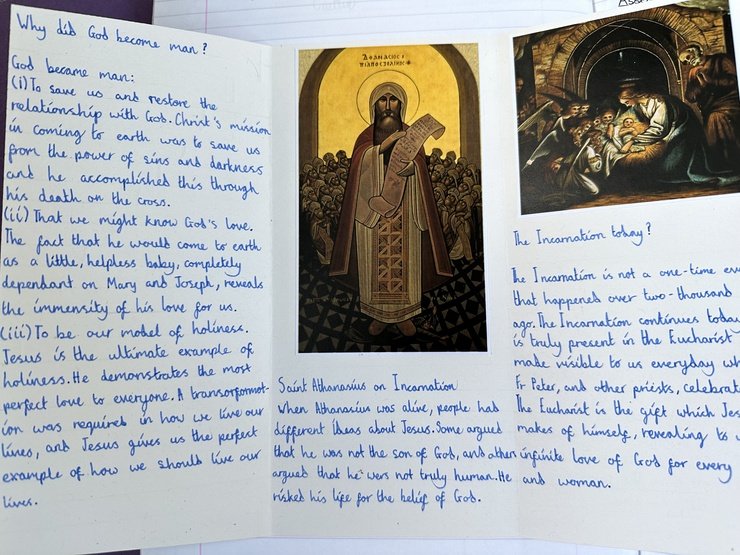 Why did God become man?
God became man:
(i) To save us and restore the
relationship with God. Christ's mission
in coming to earth was to save us
from the power of sins and darkness
and he accomplished this through
his death on the cross.
(ii) That we might know God's love.
The fact that he would come to earth
as a little, helpless baby, completely
dependant on Mary and Joseph, reveals
the immensity of his love for us.
(iii) To be our model of holiness.
Jesus is the ultimate example of
holiness. He demonstrates the most
perfect love to everyone. A transorformat-
ion was required in how we live our
lives, and Jesus gives us the perfect
example of how we should live our
lives.
Saint Athanasius on Incarnation
When Athanasius was alive, people had
different ideas about Jesus. Some argued
that he was not the son of God, and others
argued that he was not truly human. He
risked his life for the belief of God.
The Incarnation today?
The Incarnation is not a one-time
that happened over two-thousand
ago. The Incarnation continues today
is truly present in the Eucharist
made visible to us everyday
Fr Peter, and other priests,
The Eucharist is the gift which
makes of himself, revealing to
infinite love of God for every
and woman.